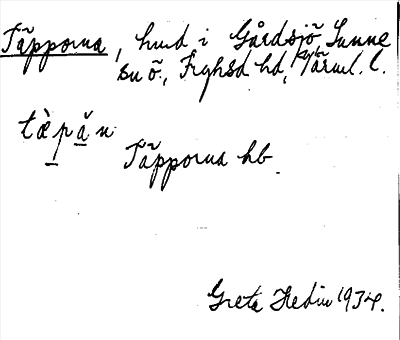 Täpporna, hmd i Gårdsjö Sunne
sn ö., Fryksd hd, Värml. l.
tæ̀pa̤n
Täpporna hb.
Greta Hedin 1934.